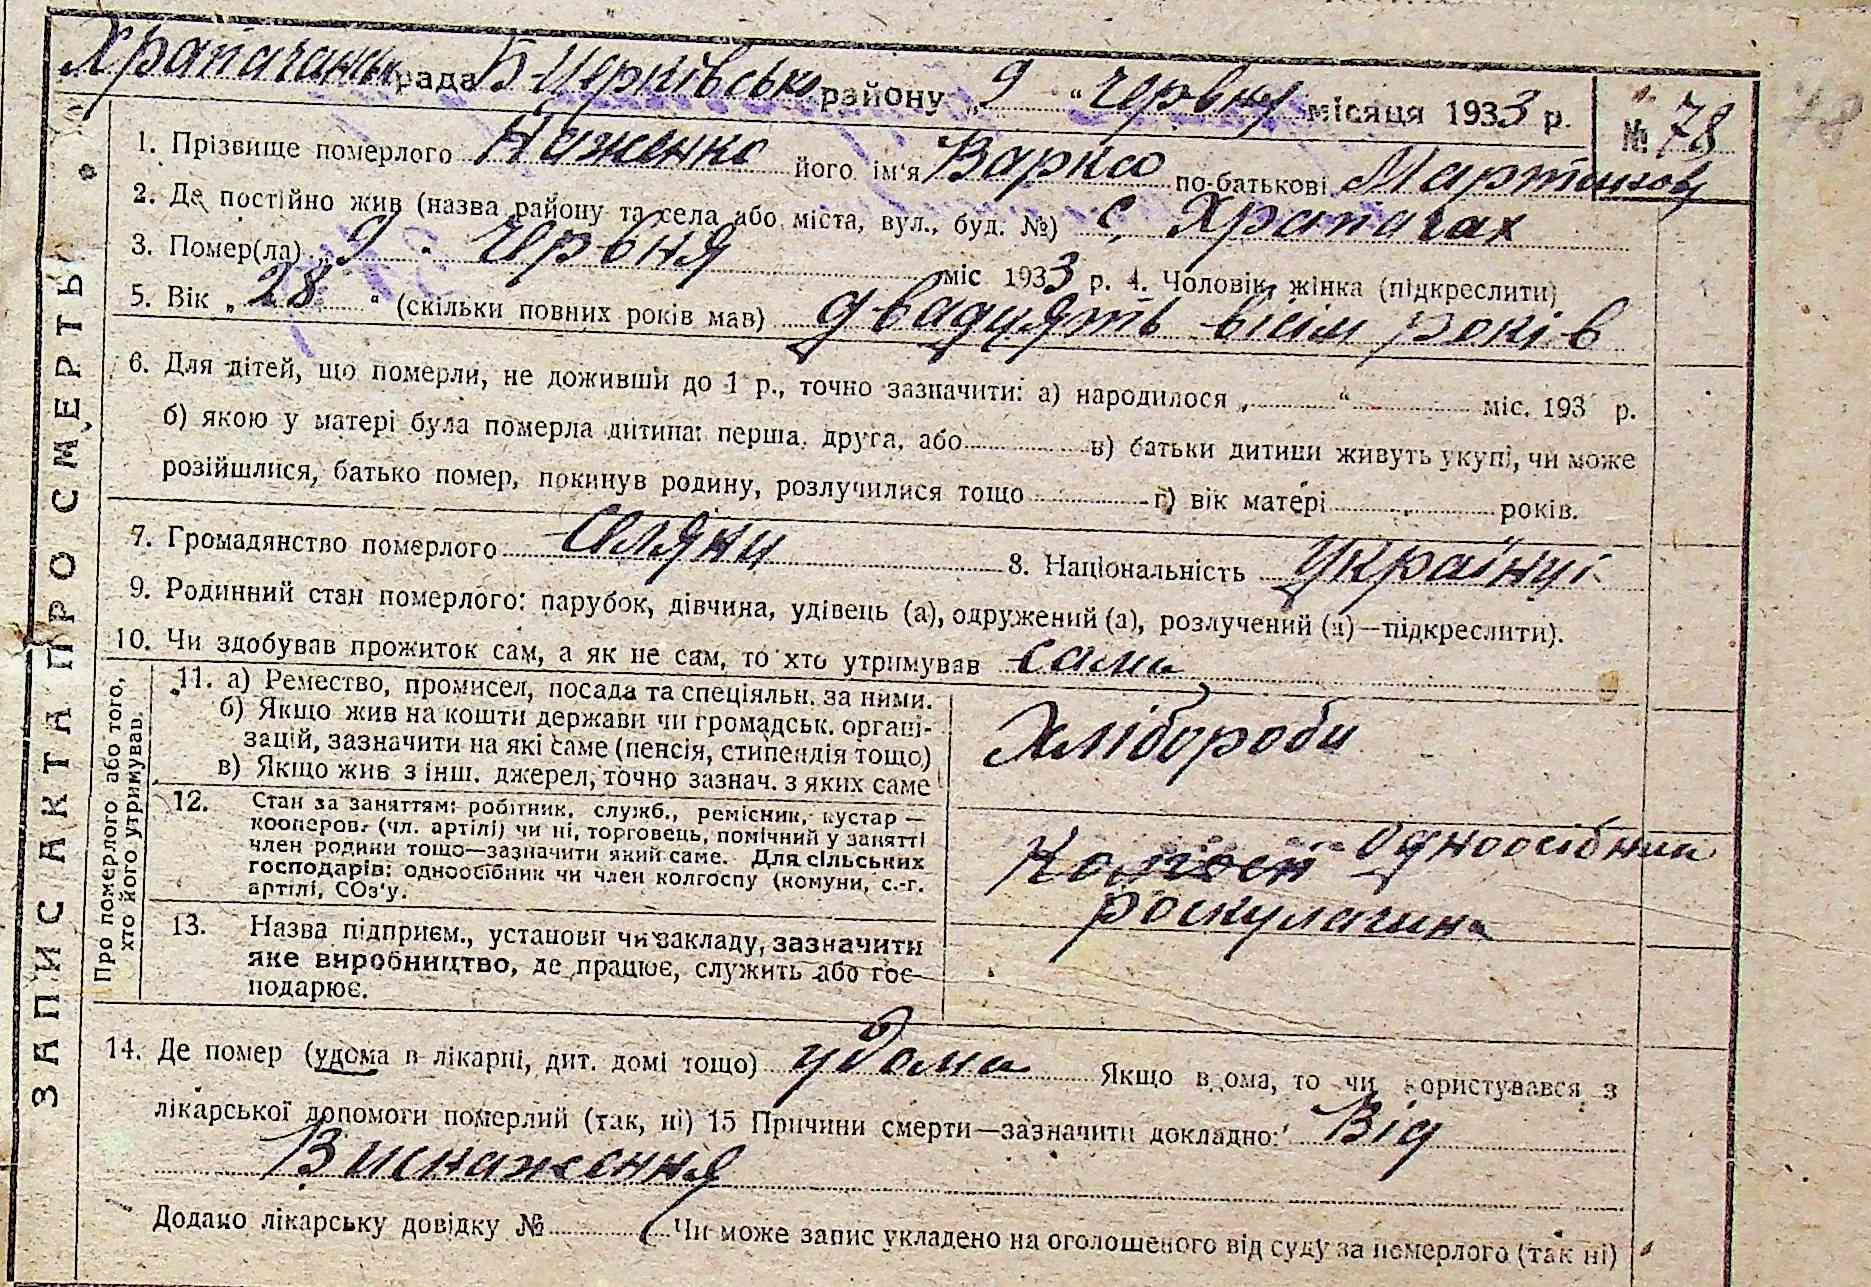 Храпачанська рада Б-Церківського району „9“ червня місяця 1933 р.
№ 78
78
1. Прізвище померлого Наженко його ім'я Варка по-батькові Мартинову
2. Де постійно жив (назва району та села або міста, вул., буд. №) с. Храпачах
3. Помер(ла) „9“ червня міс 1933 р. 4. Чоловік, жінка (підкреслити)
5. Вік „28“ (скільки повних років мав) двадцять вісім років
6. Для дітей, що померли, не доживши до 1 р., точно зазначити: а) народилося „ “ міс. 193 р.
б) якою у матері була померла дитина: перша, друга, або в) батьки дитини живуть укупі, чи може
розійшлися, батько помер, покинув родину, розлучилися тощо г) вік матері років.
7. Громадянство померлого селяни 8. Національність Українці
9. Родинний стан померлого: парубок, дівчина, удівець (а), одружений (а), розлучений (а)—підкреслити).
10. Чи здобував прожиток сам, а як не сам, то хто утримував сама
11. а) Ремество, промисел, посада та спеціяльн. за ними.
б) Якщо жив на кошти держави чи громадськ. органі-
зацій, зазначити на які саме (пенсія, стипендія тощо)
в) Якщо жив з інш. джерел, точно зазнач. з яких саме
Хлібороби
12. Стан за заняттям: робітник, служб., ремісник, кустар —
кооперов. (чл. артілі) чи ні, торговець, помічний у занятті
член родини тощо—зазначити який саме. Для сільських
господарів: одноосібник чи член колгоспу (комуни, с.-г.
артілі, СОз'у.
одноосібник
роскулачина
13. Назва підприєм., установи чи закладу, зазначити
яке виробництво, де працює, служить або гос-
подарює.
14. Де помер (удома в лікарні, дит. домі тощо) удома Якщо вдома, то чи користувався з
лікарської допомоги померлий (так, ні) 15 Причини смерти—зазначити докладно: Від
Виснаження
Додано лікарську довідку № Чи може запис укладено на оголошеного від суду за померлого (так ні)
ЗАПИС АКТА ПРО СМЕРТЬ
Про померлого або того,
хто його утримував.